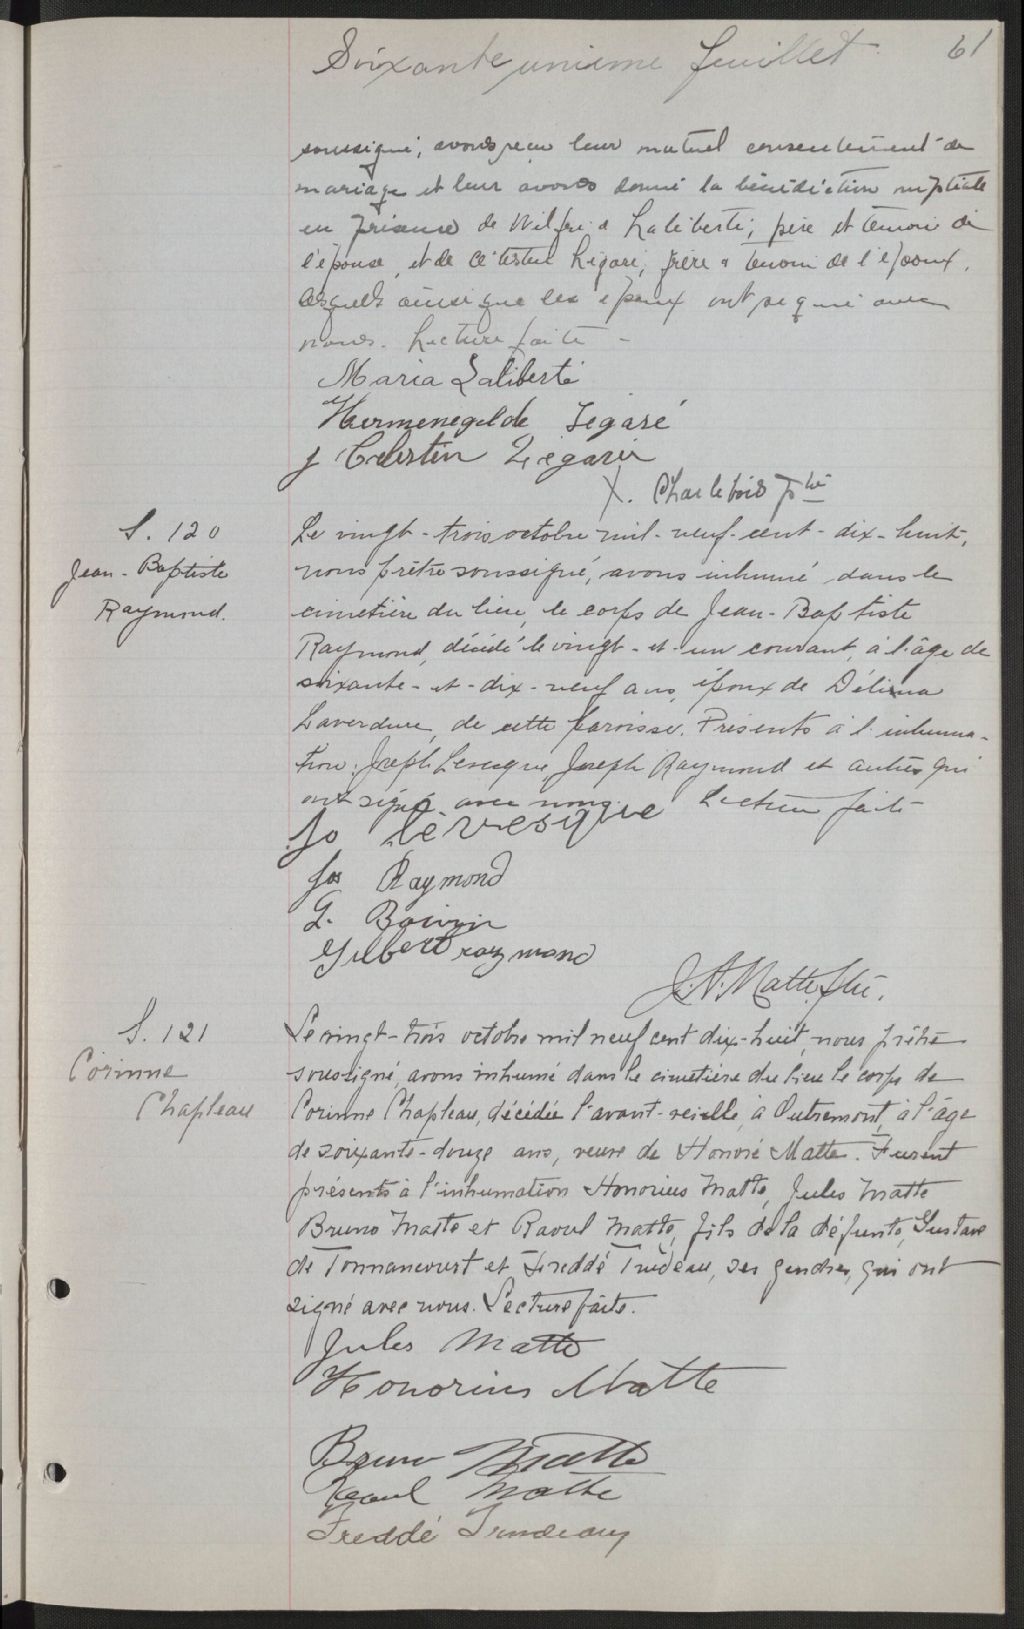 Soixante unieme feuillet 61
soussigné, avons reçu leur mutuel consentement de
mariage et leur avons donné la bénédiction nuptiale
en présence de Wilfrid Laliberté, père et témoin de
l'épouse, et de Célestin Légaré, frère & témoin de l'époux,
lesquels ainsi que les époux ont signé avec
nous. Lecture faite -
Maria Laliberté
Hermenegilde Légaré
J Celestin Légaré
X. Charlebois ptre
S. 120
Jean-Baptiste
Raymond.
Le vingt-trois octobre mil-neuf-cent-dix-huit,
nous prêtre soussigné, avons inhumé dans le
cimetière du lieu, le corps de Jean-Baptiste
Raymond, décédé le vingt-et-un courant, à l'âge de
soixante-et-dix-neuf ans, époux de Délima
Laverdure, de cette paroisse. Présents à l'inhuma-
tion: Joseph Levesque, Joseph Raymond et autres qui
ont signé avec nous. Lecture faite
Jo Lèvesque
Jos Raymond
G. Boivin
Gilbert raymond
J. A. Matte, ptre.
S. 121
Corinne
Chapleau
Le vingt-trois octobre mil neuf cent dix-huit, nous prêtre
soussigné, avons inhumé dans le cimetière du lieu le corps de
Corinne Chapleau, décédée l'avant-veille, à Outremont, à l'âge
de soixante-douze ans, veuve de Honoré Matte. Furent
présents à l'inhumation Honorius Matte, Jules Matte
Bruno Matte et Raoul Matte, fils de la défunte, Gustave
de Tonnancourt et Freddé Trudeau, ses gendres, qui ont
signé avec nous. Lecture faite.
Jules Matte
Honorius Matte
Bruno Matte
Raoul Matte
Freddé Trudeau